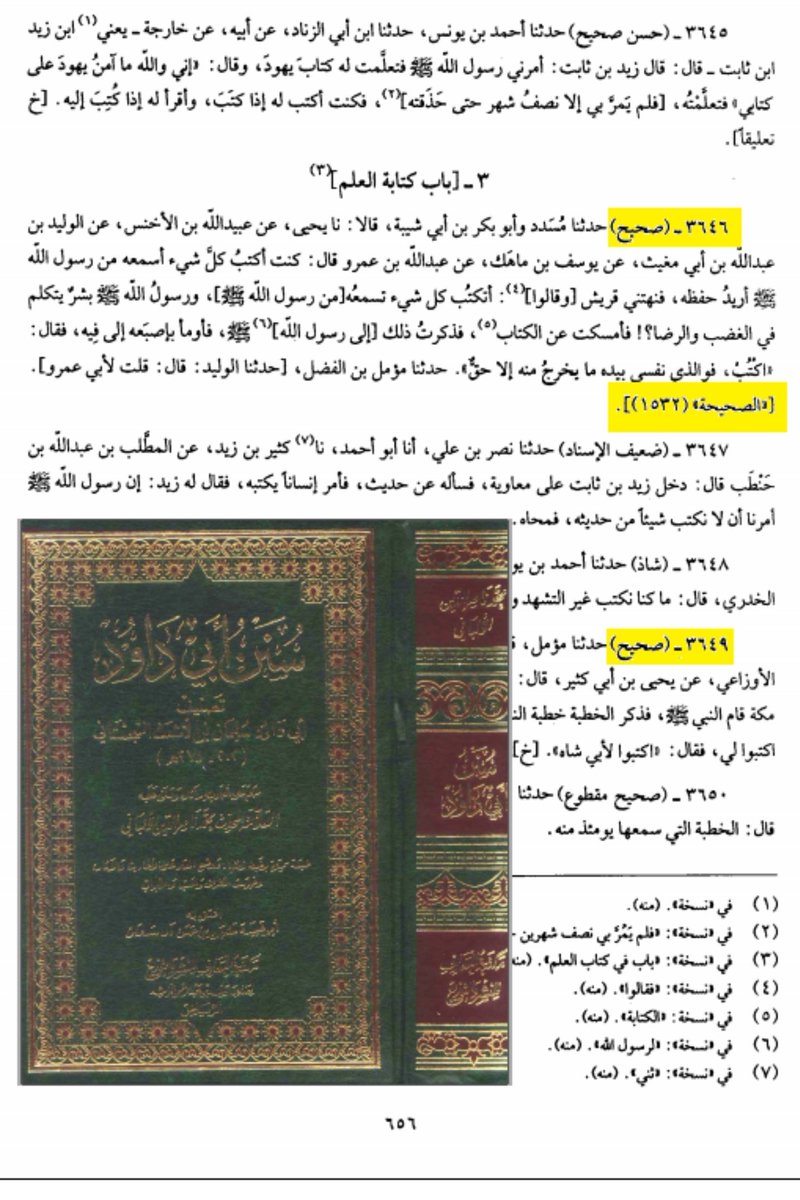 ٣٦٤٥ ـ (حسن صحيح) حدثنا أحمد بن يونس، حدثنا ابن أبي الزناد، عن أبيه، عن خارجة ـ يعني(١) ابن زيد
ابن ثابت ـ قال: قال زيد بن ثابت: أمرني رسول اللّه ﷺ فتعلَّمت له كتابَ يهودَ، وقال: «إني واللّه ما آمنُ يهودَ على
كتابي» فتعلَّمْتُه، [فلم يَمرَّ بي إلا نصفُ شهر حتى حَذَقته](٢)، فكنت أكتب له إذا كتَبَ، وأقرأ له إذا كُتِبَ إليه. [خ
تعليقاً].
٣ ـ [باب كتابة العلم](٣)
٣٦٤٦ ـ (صحيح) حدثنا مُسَدد وأبو بكر بن أبي شيبة، قالا: نا يحيى، عن عبيداللّه بن الأخنس، عن الوليد بن
عبداللّه بن أبي مغيث، عن يوسف بن ماهَك، عن عبداللّه بن عمرو قال: كنت أكتبُ كلَّ شيء أسمعه من رسول اللّه
ﷺ أريدُ حفظه، فنهتني قريش [وقالوا](٤): أتكتُب كل شيء تسمعُه[من رسول اللّه ﷺ]، ورسولُ اللّه ﷺ بشرٌ يتكلم
في الغضب والرضا؟! فأمسكت عن الكتاب(٥)، فذكرتُ ذلك [إلى رسول اللّه](٦) ﷺ، فأومأ بإصبَعه إلى فِيه، فقال:
«اكتُبْ، فوالذي نفسي بيده ما يخرجُ منه إلا حقٌّ». حدثنا مؤمل بن الفضل، [حدثنا الوليد: قال: قلت لأبي عمرو].
[«الصحيحة» (١٥٣٢)].
٣٦٤٧ ـ (ضعيف الإسناد) حدثنا نصر بن علي، أنا أبو أحمد، نا(٧) كثير بن زيد، عن المطَّلب بن عبداللّه بن
حَنْطَب قال: دخل زيد بن ثابت على معاوية، فسأله عن حديث، فأمر إنساناً يكتبه، فقال له زيد: إن رسول اللّه ﷺ
أمرنا أن لا نكتب شيئاً من حديثه، فمحاه.
٣٦٤٨ ـ (شاذ) حدثنا أحمد بن يو
الخدري، قال: ما كنا نكتب غير التشهد و
٣٦٤٩ ـ (صحيح) حدثنا مؤمل،
الأوزاعي، عن يحيى بن أبي كثير، قال:
مكة قام النبي ﷺ، فذكر الخطبة خطبة
اكتبوا لي، فقال: «اكتبوا لأبي شاه». [خ]
٣٦٥٠ ـ (صحيح مقطوع) حدثنا
قال: الخطبة التي سمعها يومئذ منه.
(١) في «نسخة». (منه).
(٢) في «نسخة»: «فلم يَمُرَّ بي نصف شهرين
(٣) في «نسخة»: «باب في كتاب العلم». (منه
(٤) في «نسخة»: «فقالوا». (منه).
(٥) في «نسخة: «الكتابة». (منه).
(٦) في «نسخة»: «لرسول الله». (منه).
(٧) في «نسخة»: «ثني». (منه).
٦٥٦
سُنَن أَبي دَاوُد
تصنيف
أبي داود سليمان بن الأشعث السجستاني
محمد ناصر الدين
الألباني
سُنَن
أَبي دَاوُد